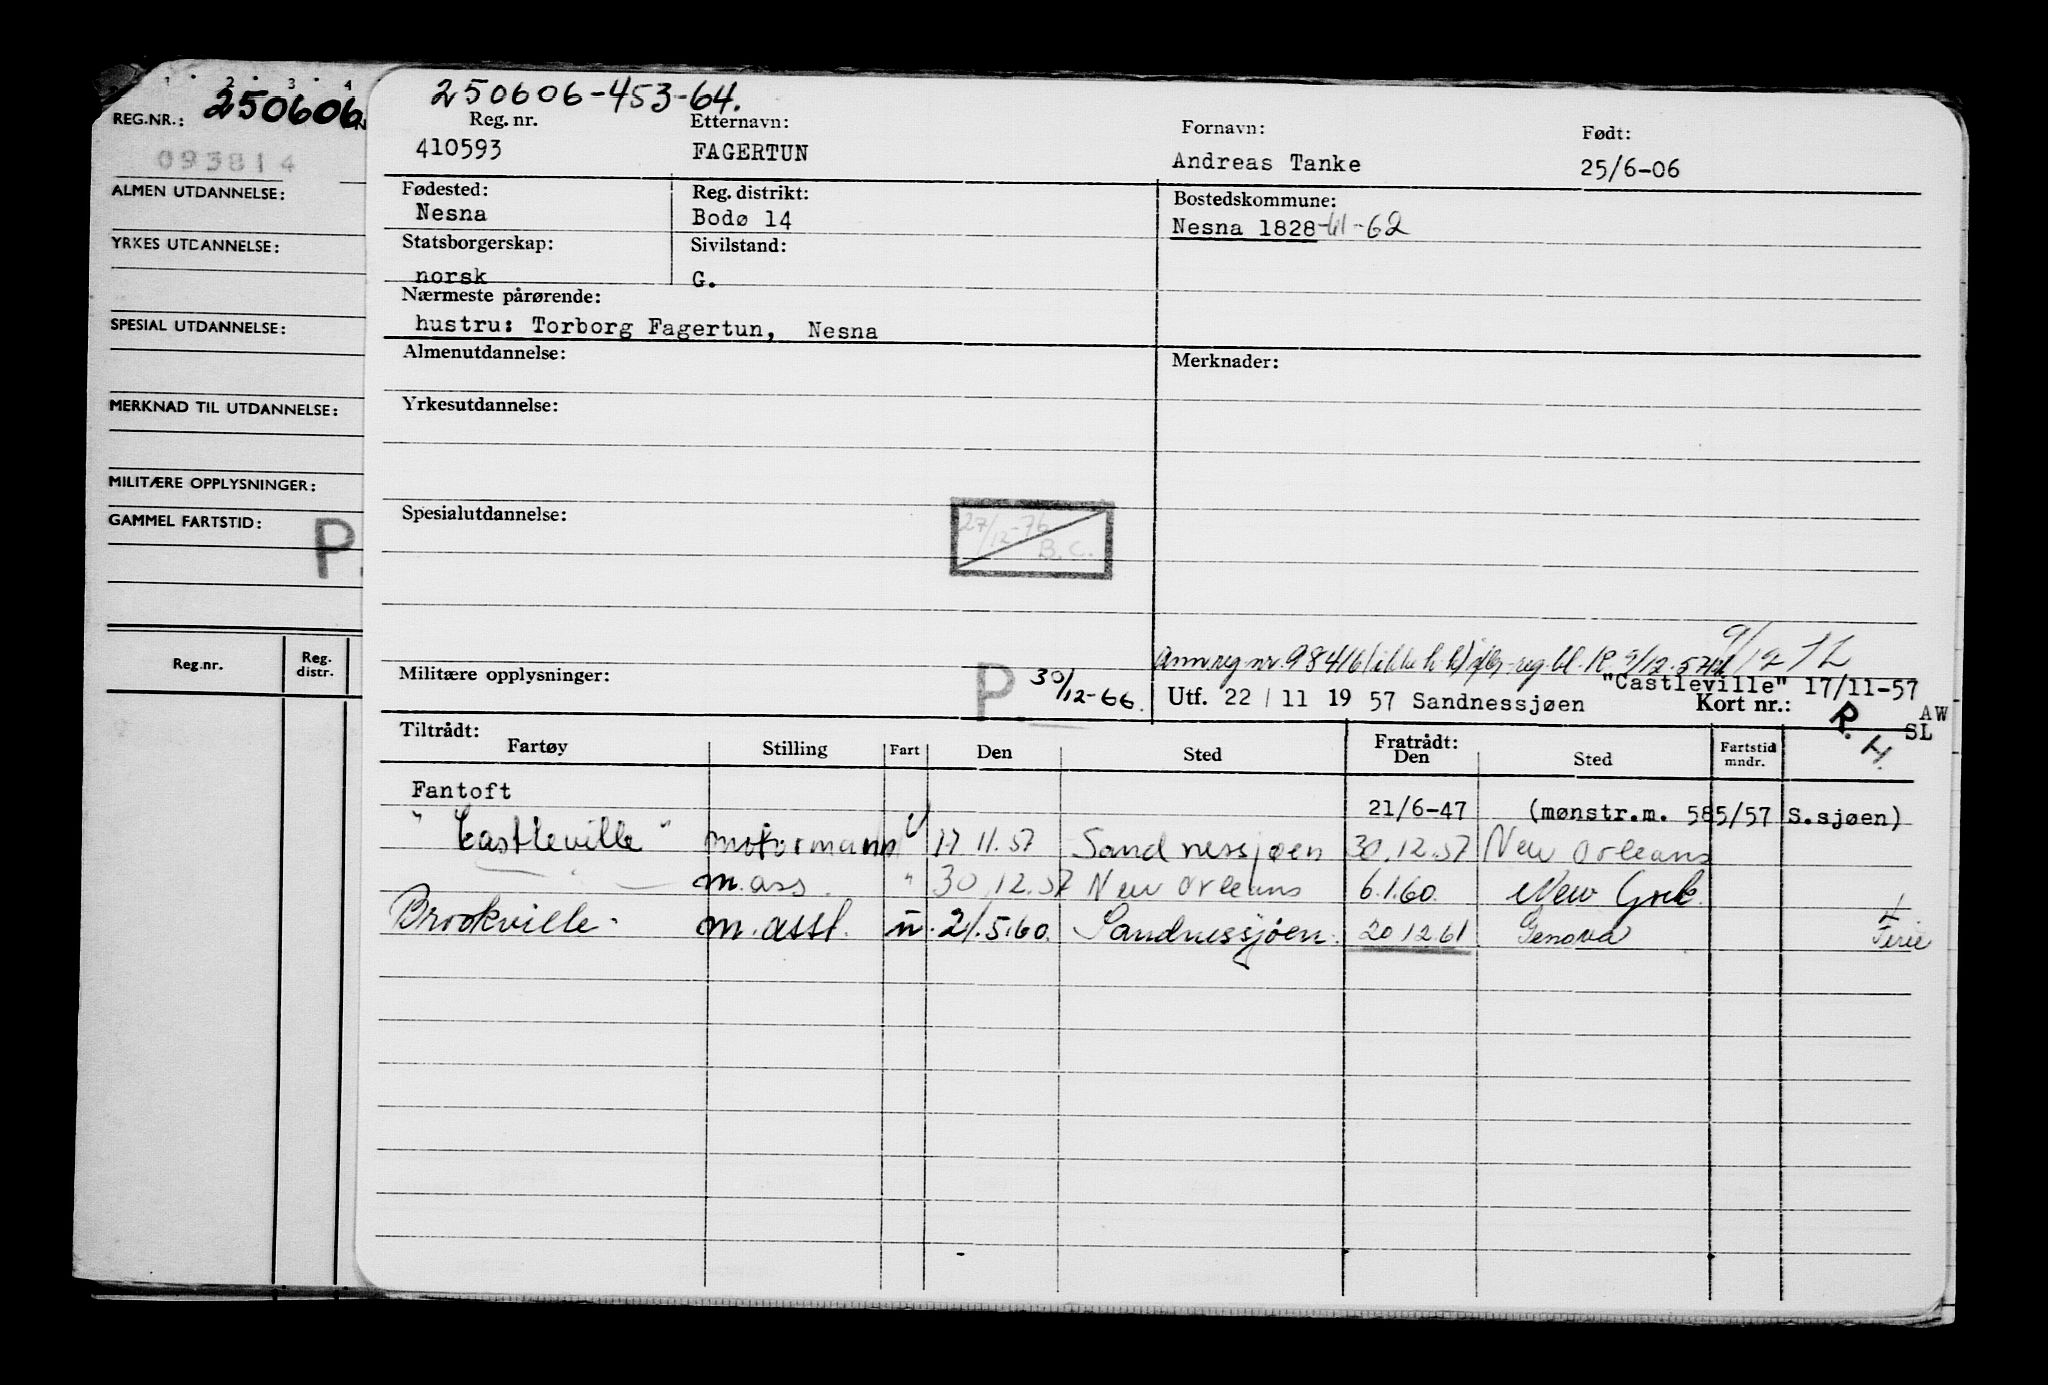 1 2 3 4
REG.NR.: 250606
093814
ALMEN UTDANNELSE:
YRKES UTDANNELSE:
SPESIAL UTDANNELSE:
MERKNAD TIL UTDANNELSE:
MILITÆRE OPPLYSNINGER:
GAMMEL FARTSTID:
P.
Reg.nr. Reg. distr.
250606-453-64.
Reg. nr. Etternavn: Fornavn: Født:
410593 FAGERTUN Andreas Tanke 25/6-06
Fødested: Reg. distrikt: Bostedskommune:
Nesna Bodø 14 Nesna 1828-61-62
Statsborgerskap: Sivilstand:
norsk G.
Nærmeste pårørende:
hustru: Torborg Fagertun, Nesna
Almenutdannelse: Merknader:
Yrkesutdannelse:
Spesialutdannelse:
27/12-76
B.C.
Ann.reg.nr. 98416 (ikke h.k) reg.bl. R. 9/12-57
"Castleville" 17/11-57
Militære opplysninger: P 30/12-66. Utf. 22 / 11 19 57 Sandnessjøen Kort nr.: AW
R.H. SL
Tiltrådt: Fratrådt:
Fartøy Stilling Fart Den Sted Den Sted Fartstid mndr.
Fantoft 21/6-47 (mønstr.m. 585/57 S.sjøen)
"Castleville" motormann U 17 11.57 Sandnessjøen 30.12.57 New Orleans
m.ass. " 30.12.57 New Orleans 6.1.60. New York
Brookville m.asst. u. 21.5.60. Sandnessjøen. 20 12 61 Genova Ferie